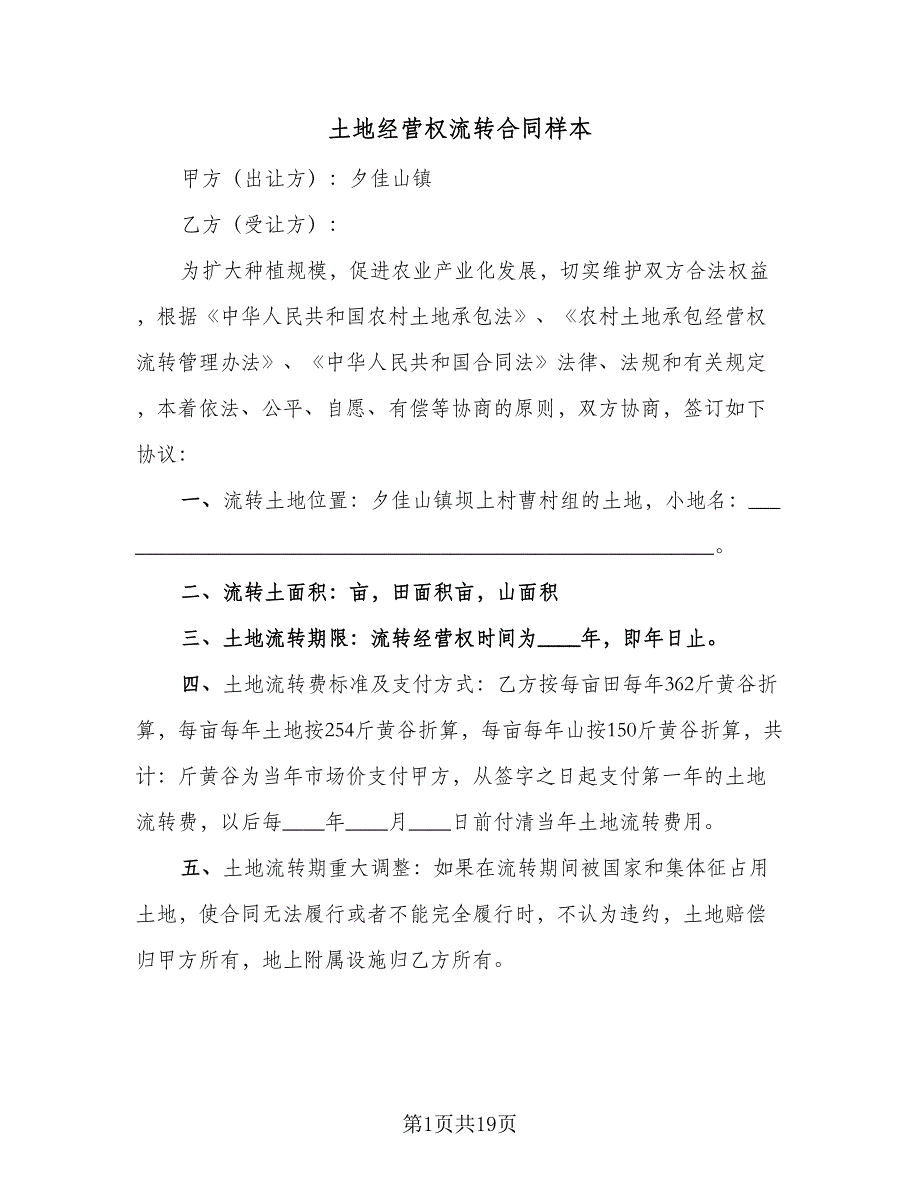 土地经营权流转合同样本
甲方（出让方）：夕佳山镇
乙方（受让方）：
为扩大种植规模，促进农业产业化发展，切实维护双方合法权益
，根据《中华人民共和国农村土地承包法》、《农村土地承包经营权
流转管理办法》、《中华人民共和国合同法》法律、法规和有关规定
，本着依法、公平、自愿、有偿等协商的原则，双方协商，签订如下
协议：
一、流转土地位置：夕佳山镇坝上村曹村组的土地，小地名：___
_______________________________________________________。
二、流转土面积：亩，田面积亩，山面积
三、土地流转期限：流转经营权时间为____年，即年日止。
四、土地流转费标准及支付方式：乙方按每亩田每年362斤黄谷折
算，每亩每年土地按254斤黄谷折算，每亩每年山按150斤黄谷折算，共
计：斤黄谷为当年市场价支付甲方，从签字之日起支付第一年的土地
流转费，以后每____年____月____日前付清当年土地流转费用。
五、土地流转期重大调整：如果在流转期间被国家和集体征占用
土地，使合同无法履行或者不能完全履行时，不认为违约，土地赔偿
归甲方所有，地上附属设施归乙方所有。
第1页共19页